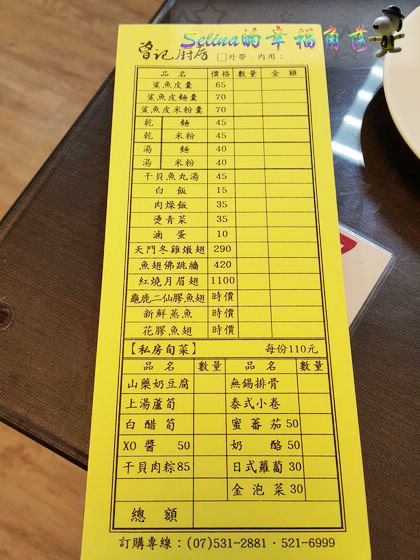 Selina的幸福角度
曾記廚房 □外帶 內用：
品名 價格 數量 金額
鯊魚皮羹 65
鯊魚皮麵羹 70
鯊魚皮米粉羹 70
乾 麵 45
乾 米粉 45
湯 麵 40
湯 米粉 40
干貝魚丸湯 45
白飯 15
肉燥飯 35
燙青菜 35
滷蛋 10
天門冬雞燉翅 290
魚翅佛跳牆 420
紅燒月眉翅 1100
龜鹿二仙膠魚翅 時價
新鮮蒸魚 時價
花膠魚翅 時價
【私房旬菜】 每份110元
品名 數量 品名 數量
山藥奶豆腐 無錫排骨
上湯蘆筍 泰式小卷
白醋筍 蜜蕃茄50
XO醬 50 奶酪 50
干貝肉粽85 日式蘿蔔30
金泡菜30
總額
訂購專線：(07)531-2881‧521-6999